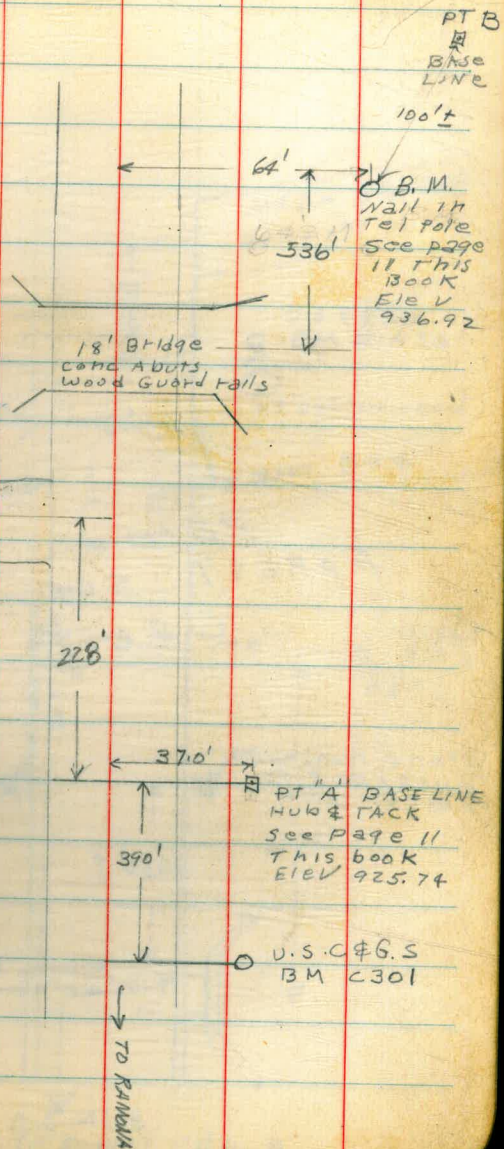 PT B
BASE
LINE
100'±
64'
B. M.
Nail in
Tel Pole
See page
11 This
Book
Elev
936.92
536'
18' Bridge
conc Abuts
Wood Guard rails
228'
37.0'
PT "A" BASE LINE
HUB & TACK
See Page 11
This book
Elev 925.74
390'
U.S.C. & G.S
BM C301
TO RAMONA